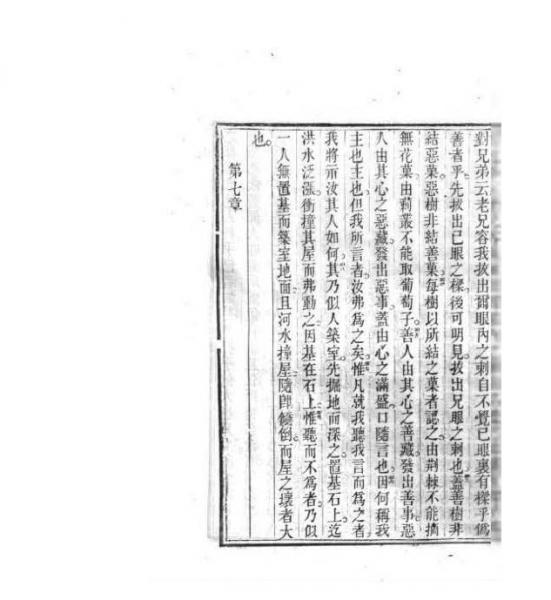 對兄弟云老兄容我拔出爾眼內之刺自不覺已眼裏有樑乎僞
善者乎先拔出已眼之樑後可明見拔出兄眼之刺也蓋善樹非
結惡菓惡樹非結善菓每樹以所結之菓者認之由荆棘不能摘
無花菓由莿叢不能取葡萄子善人由其心之善藏發出善事惡
人由其心之惡藏發出惡事蓋由心之滿盛口隨言也因何稱我
主也主也但我所言者汝弗為之矣惟凡就我聽我言而為之者
我將示汝其人如何其乃似人築室先掘地而深之置基石上迄
洪水泛漲衝撞其屋而弗動之因基在石上惟聽而不為者乃似
一人無置基而築室地面且河水撞屋隨即傾倒而屋之壞者大
也
第七章